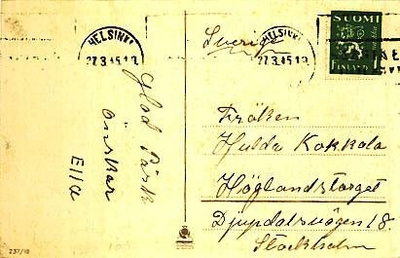 HELSINKI
27.3.45.12
HELSINKI
27.3.45.12
SUOMI
FINLAND
Sverige
Glad Påsk
önskar
Ella
Fröken
Hulda Kokkola
Höglandstorget
Djupdalsvägen 18.
Stockholm
237/18